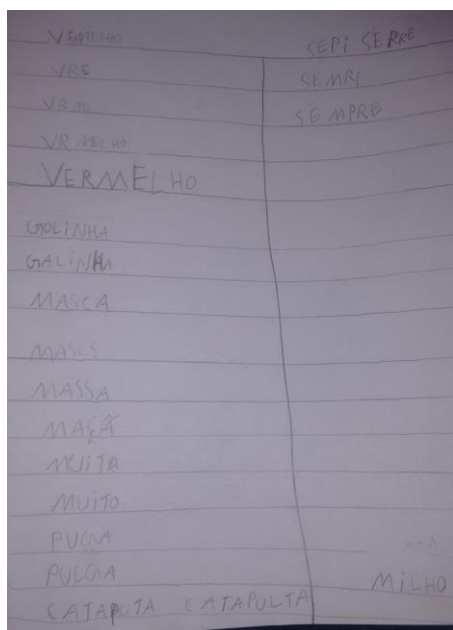 VEMELHO
VRE
VRM
VRMELHO
VERMELHO
GOLINHA
GALINHA
MASCA
MASSA
MAÇÃ
MUITA
MUITO
PUGA
PULGA
CATAPUTA CATAPULTA
SEPI SERRE
SEMRI
SEMPRE
MILHO